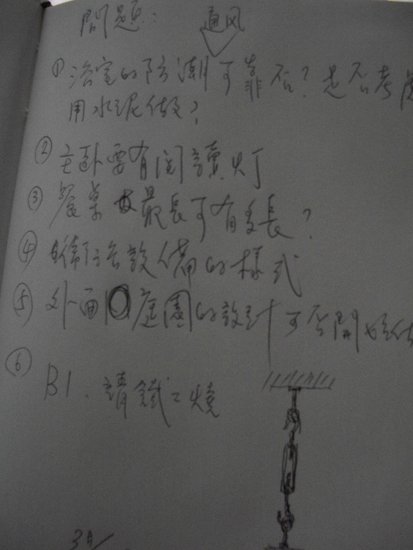 問題: 通风
① 浴室的防潮可靠否? 是否考慮
用水泥做?
② 主卧要有閱讀灯
③ 餐桌最長可有多長?
④ 衛浴設備的樣式
⑤ 外面庭園的設計可否開始做
⑥ B1. 請鐵工燒